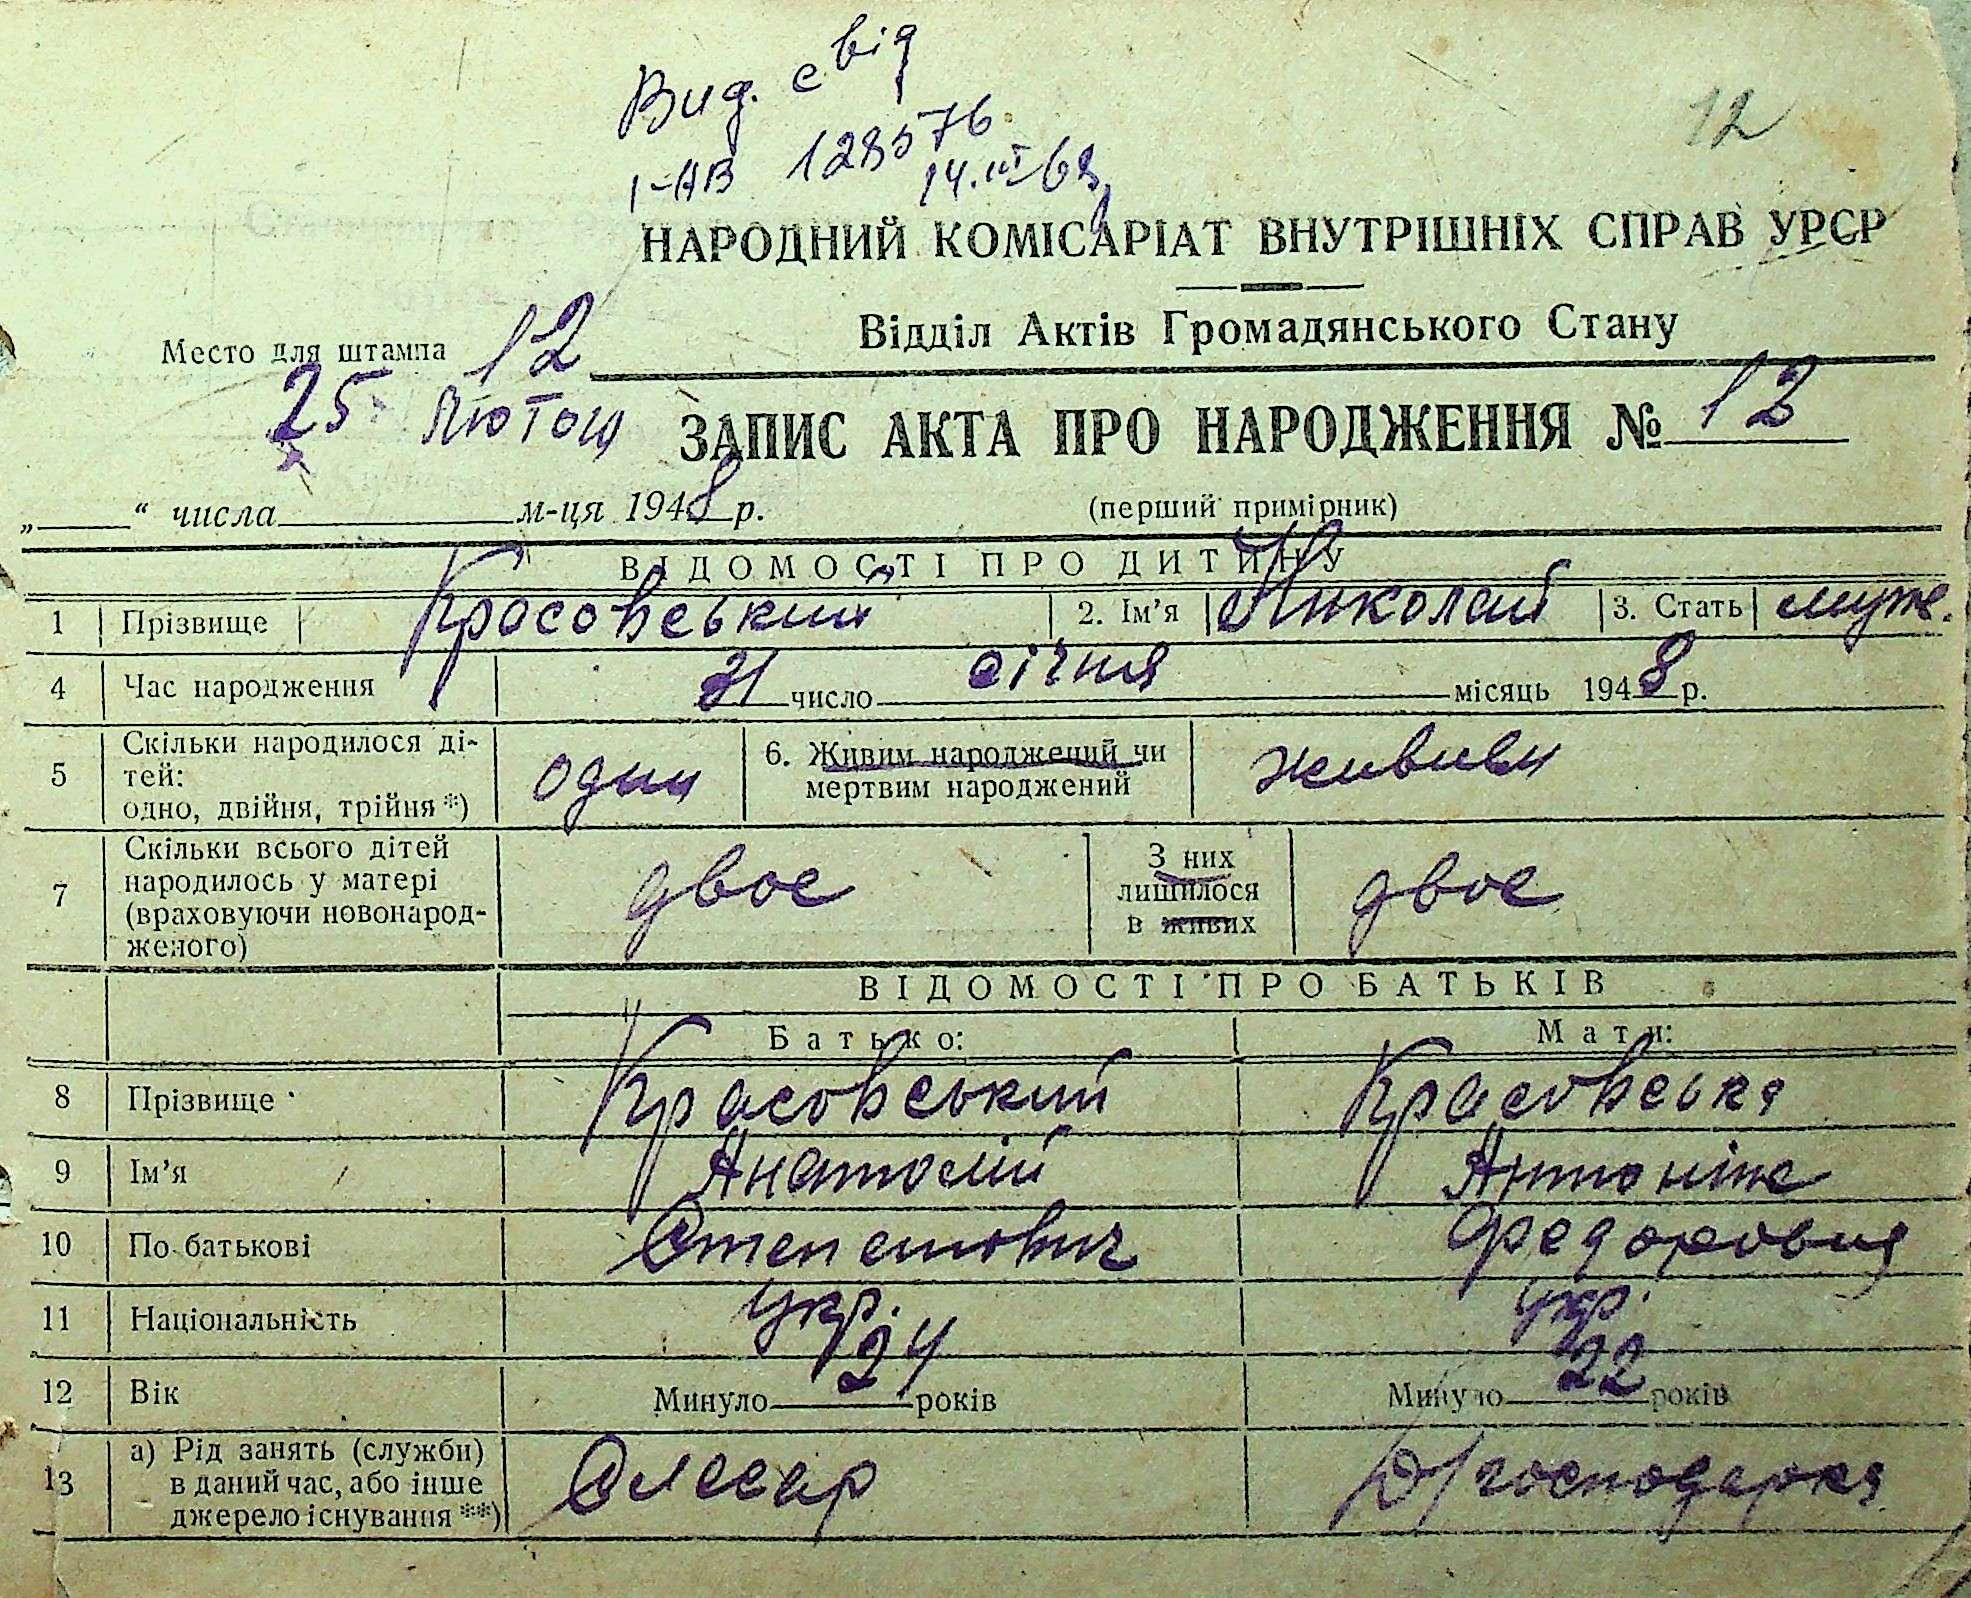 Вид. свід
I-АВ 128576
14.III 68
12
НАРОДНИЙ КОМІСАРІАТ ВНУТРІШНІХ СПРАВ УРСР
Відділ Актів Громадянського Стану
Место для штампа 12
25 лютого
ЗАПИС АКТА ПРО НАРОДЖЕННЯ № 12
„ “ числа м-ця 1948 р. (перший примірник)
ВІДОМОСТІ ПРО ДИТИНУ
1 Прізвище Красовський 2. Ім’я Николай 3. Стать муж.
4 Час народження 31 число січня місяць 1948 р.
5 Скільки народилося дітей: одно, двійня, трійня *) один 6. Живим народжений чи мертвим народжений живим
7 Скільки всього дітей народилось у матері (враховуючи новонародженого) двоє З них лишилося в живих двоє
ВІДОМОСТІ ПРО БАТЬКІВ
Батько: Мати:
8 Прізвище Красовський Красовська
9 Ім’я Анатолій Антоніна
10 По батькові Степанович Федоровна
11 Національність укр. укр.
12 Вік Минуло 24 років Минуло 22 років
13 а) Рід занять (служби) в даний час, або інше джерело існування **) Слесар Д/господарка